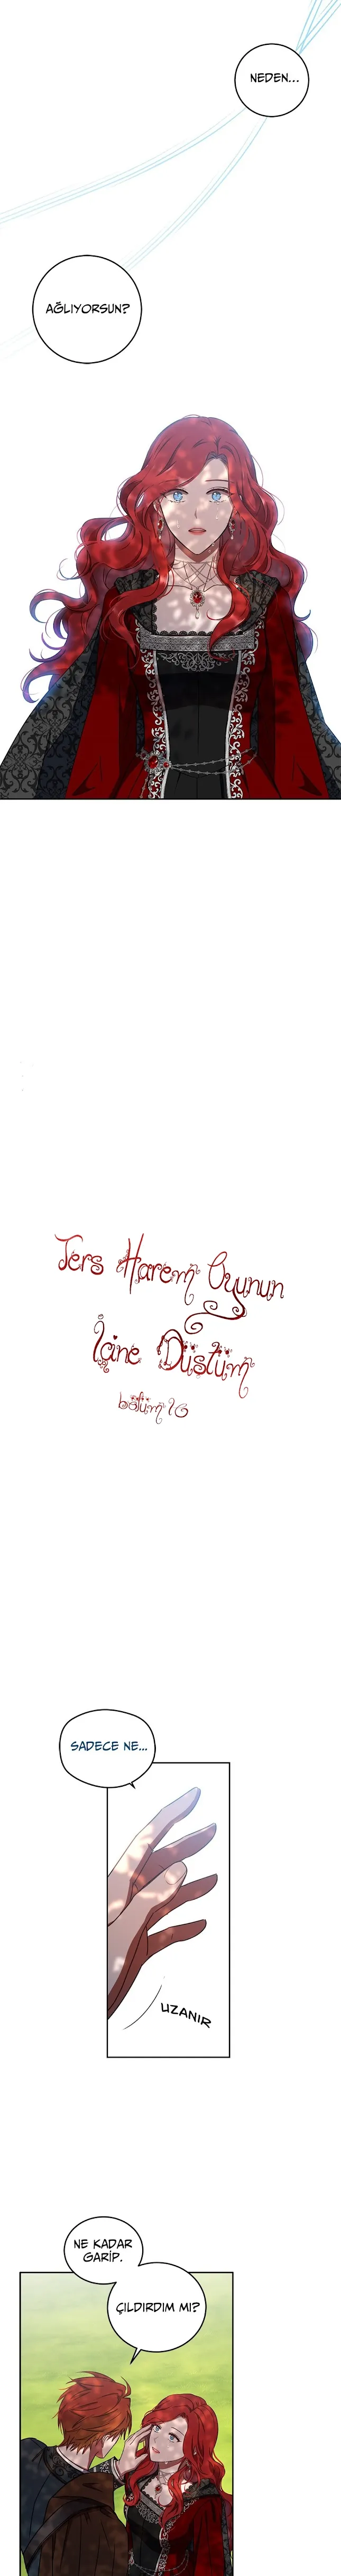 NEDEN...
AĞLIYORSUN?
Ters Harem Oyunun
İçine Düştüm
bölüm 16
SADECE NE...
UZANIR
NE KADAR
GARİP.
ÇILDIRDIM MI?